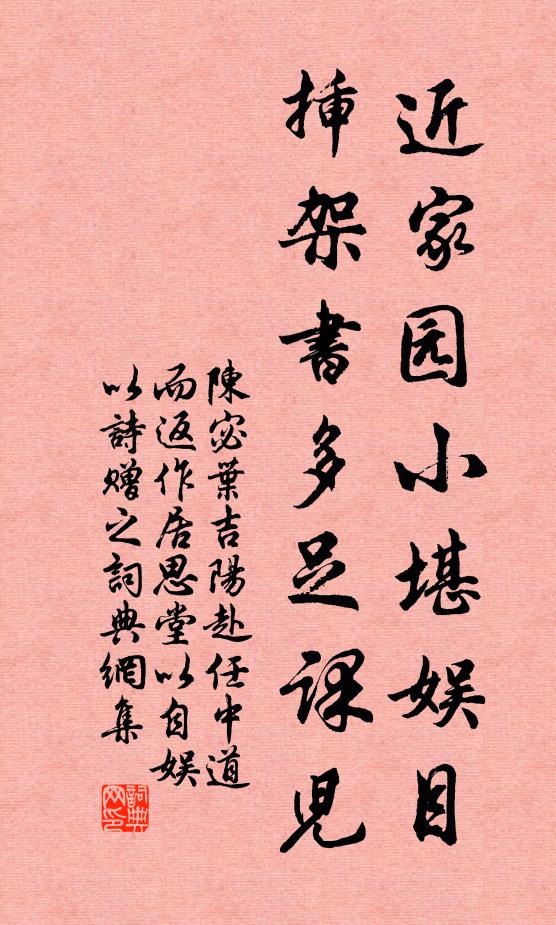 近家园小堪娱目
挿架書多足課児
陳宓葉吉陽赴任中道
而返作居思堂以自娱
以詩赠之詞典網集
詞典
网印